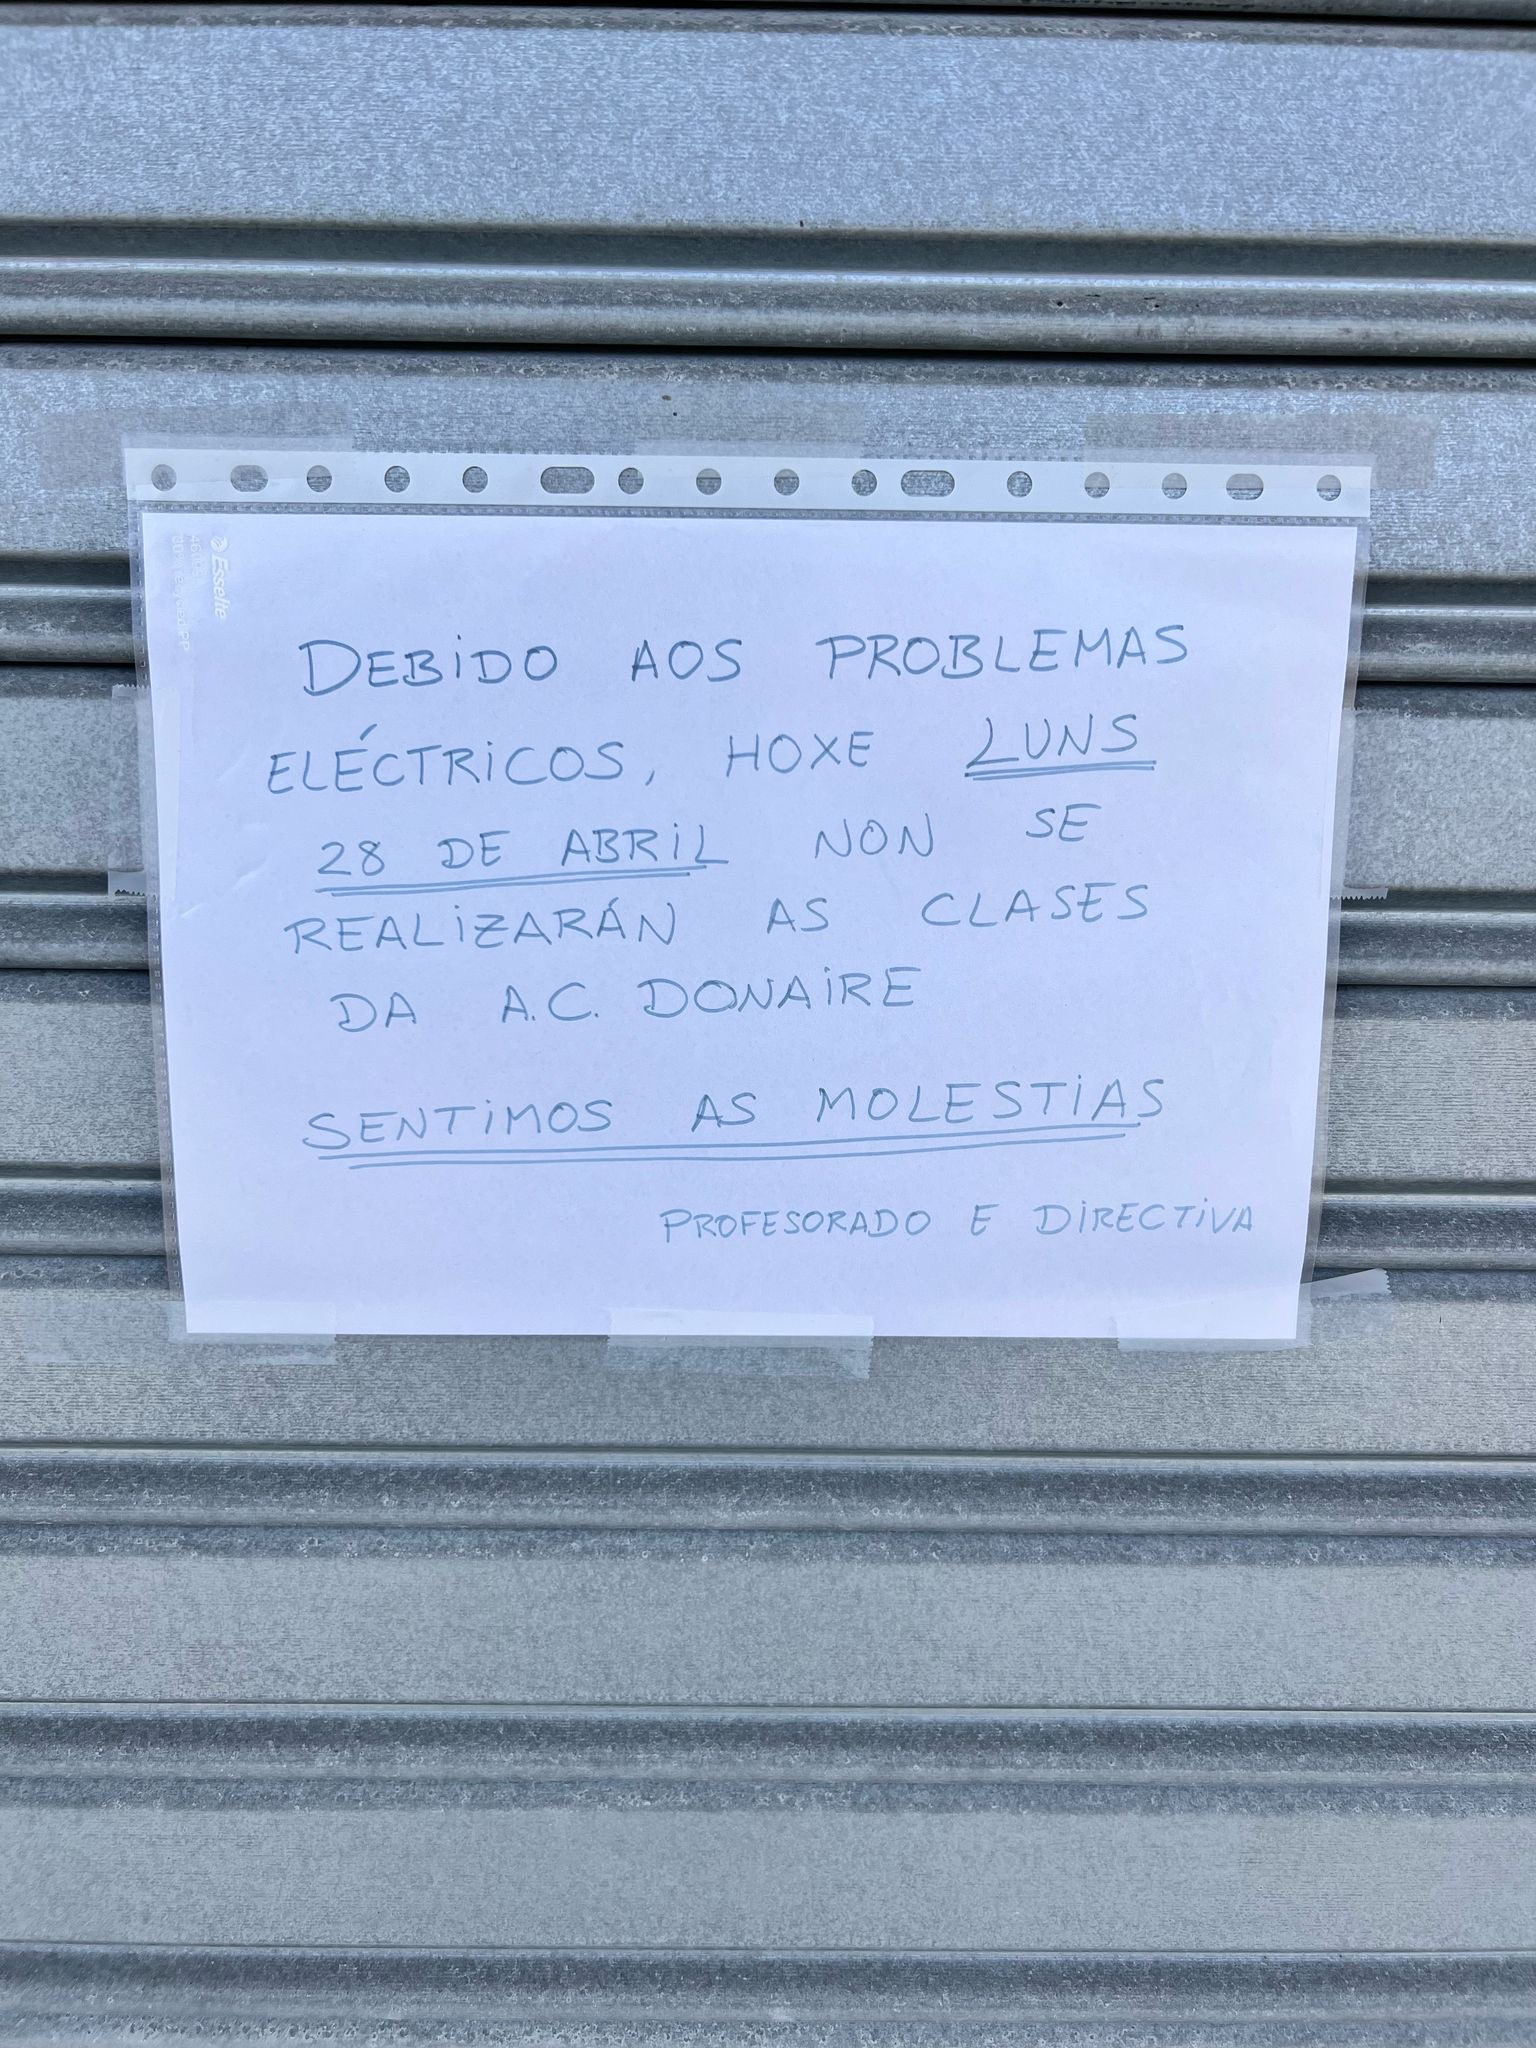 Esselte
DEBIDO AOS PROBLEMAS
ELÉCTRICOS, HOXE LUNS
28 DE ABRIL NON SE
REALIZARÁN AS CLASES
DA A.C. DONAIRE
SENTIMOS AS MOLESTIAS
PROFESORADO E DIRECTIVA